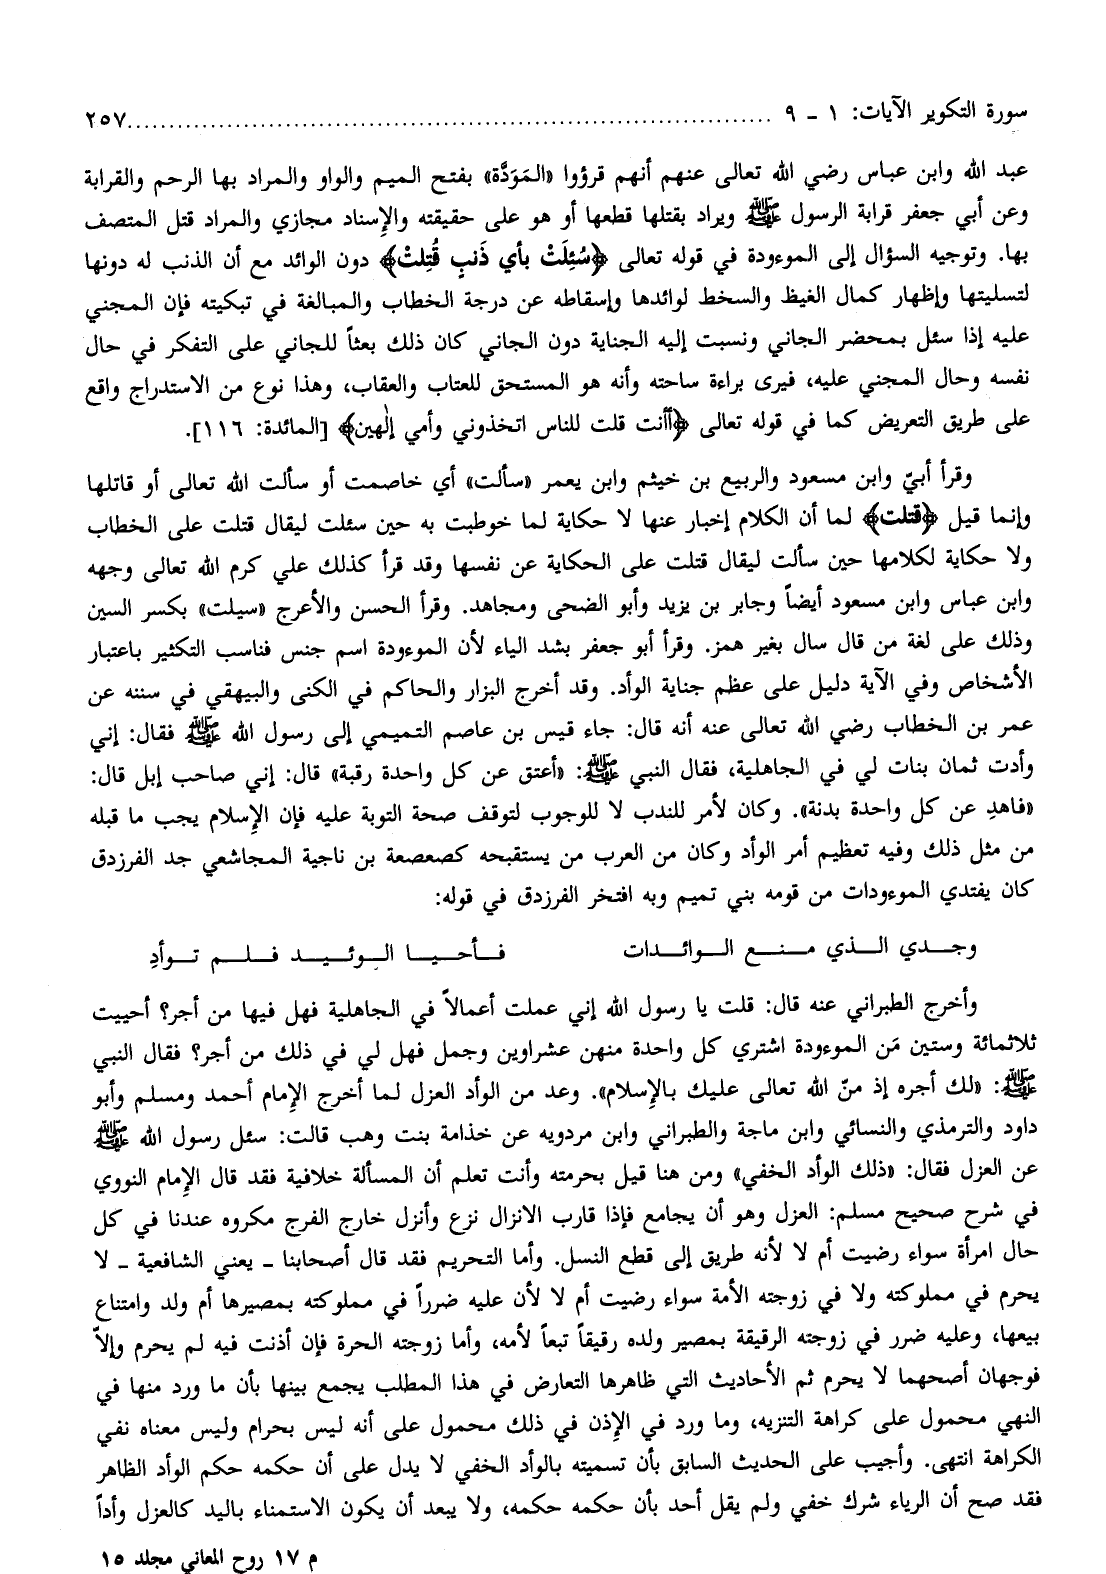 سورة التكوير الآيات: ١ ـ ٩ ........................................................................... ٢٥٧
عبد الله وابن عباس رضي الله تعالى عنهم أنهم قرؤوا «المَوَدَّة» بفتح الميم والواو والمراد بها الرحم والقرابة
وعن أبي جعفر قرابة الرسول ﷺ ويراد بقتلها قطعها أو هو على حقيقته والإسناد مجازي والمراد قتل المتصف
بها. وتوجيه السؤال إلى الموءودة في قوله تعالى ﴿سُئِلَتْ بأي ذَنبٍ قُتِلتْ﴾ دون الوائد مع أن الذنب له دونها
لتسليتها وإظهار كمال الغيظ والسخط لوائدها وإسقاطه عن درجة الخطاب والمبالغة في تبكيته فإن المجني
عليه إذا سئل بمحضر الجاني ونسبت إليه الجناية دون الجاني كان ذلك بعثاً للجاني على التفكر في حال
نفسه وحال المجني عليه، فيرى براءة ساحته وأنه هو المستحق للعتاب والعقاب، وهذا نوع من الاستدراج واقع
على طريق التعريض كما في قوله تعالى ﴿أأنت قلت للناس اتخذوني وأمي إلٰهين﴾ [المائدة: ١١٦].
وقرأ أبيّ وابن مسعود والربيع بن خيثم وابن يعمر «سألت» أي خاصمت أو سألت الله تعالى أو قاتلها
وإنما قيل ﴿قتلت﴾ لما أن الكلام إخبار عنها لا حكاية لما خوطبت به حين سئلت ليقال قتلت على الخطاب
ولا حكاية لكلامها حين سألت ليقال قتلت على الحكاية عن نفسها وقد قرأ كذلك علي كرم الله تعالى وجهه
وابن عباس وابن مسعود أيضاً وجابر بن يزيد وأبو الضحى ومجاهد. وقرأ الحسن والأعرج «سيلت» بكسر السين
وذلك على لغة من قال سال بغير همز. وقرأ أبو جعفر بشد الياء لأن الموءودة اسم جنس فناسب التكثير باعتبار
الأشخاص وفي الآية دليل على عظم جناية الوأد. وقد أخرج البزار والحاكم في الكنى والبيهقي في سننه عن
عمر بن الخطاب رضي الله تعالى عنه أنه قال: جاء قيس بن عاصم التميمي إلى رسول الله ﷺ فقال: إني
وأدت ثمان بنات لي في الجاهلية، فقال النبي ﷺ: «أعتق عن كل واحدة رقبة» قال: إني صاحب إبل قال:
«فاهدِ عن كل واحدة بدنة». وكان لأمر للندب لا للوجوب لتوقف صحة التوبة عليه فإن الإسلام يجب ما قبله
من مثل ذلك وفيه تعظيم أمر الوأد وكان من العرب من يستقبحه كصعصعة بن ناجية المجاشعي جد الفرزدق
كان يفتدي الموءودات من قومه بني تميم وبه افتخر الفرزدق في قوله:
وجدي الذي منع الوائدات فأحيا الوئيد فلم توأدِ
وأخرج الطبراني عنه قال: قلت يا رسول الله إني عملت أعمالاً في الجاهلية فهل فيها من أجر؟ أحييت
ثلاثمائة وستين مَن الموءودة اشتري كل واحدة منهن عشراوين وجمل فهل لي في ذلك من أجر؟ فقال النبي
ﷺ: «لك أجره إذ منّ الله تعالى عليك بالإسلام». وعد من الوأد العزل لما أخرج الإمام أحمد ومسلم وأبو
داود والترمذي والنسائي وابن ماجة والطبراني وابن مردويه عن خذامة بنت وهب قالت: سئل رسول الله ﷺ
عن العزل فقال: «ذلك الوأد الخفي» ومن هنا قيل بحرمته وأنت تعلم أن المسألة خلافية فقد قال الإمام النووي
في شرح صحيح مسلم: العزل وهو أن يجامع فإذا قارب الانزال نزع وأنزل خارج الفرج مكروه عندنا في كل
حال امرأة سواء رضيت أم لا لأنه طريق إلى قطع النسل. وأما التحريم فقد قال أصحابنا ـ يعني الشافعية ـ لا
يحرم في مملوكته ولا في زوجته الأمة سواء رضيت أم لا لأن عليه ضرراً في مملوكته بمصيرها أم ولد وامتناع
بيعها، وعليه ضرر في زوجته الرقيقة بمصير ولده رقيقاً تبعاً لأمه، وأما زوجته الحرة فإن أذنت فيه لم يحرم وإلاّ
فوجهان أصحهما لا يحرم ثم الأحاديث التي ظاهرها التعارض في هذا المطلب يجمع بينها بأن ما ورد منها في
النهي محمول على كراهة التنزيه، وما ورد في الإذن في ذلك محمول على أنه ليس بحرام وليس معناه نفي
الكراهة انتهى. وأجيب على الحديث السابق بأن تسميته بالوأد الخفي لا يدل على أن حكمه حكم الوأد الظاهر
فقد صح أن الرياء شرك خفي ولم يقل أحد بأن حكمه حكمه، ولا يبعد أن يكون الاستمناء باليد كالعزل وأداً
م ١٧ روح المعاني مجلد ١٥